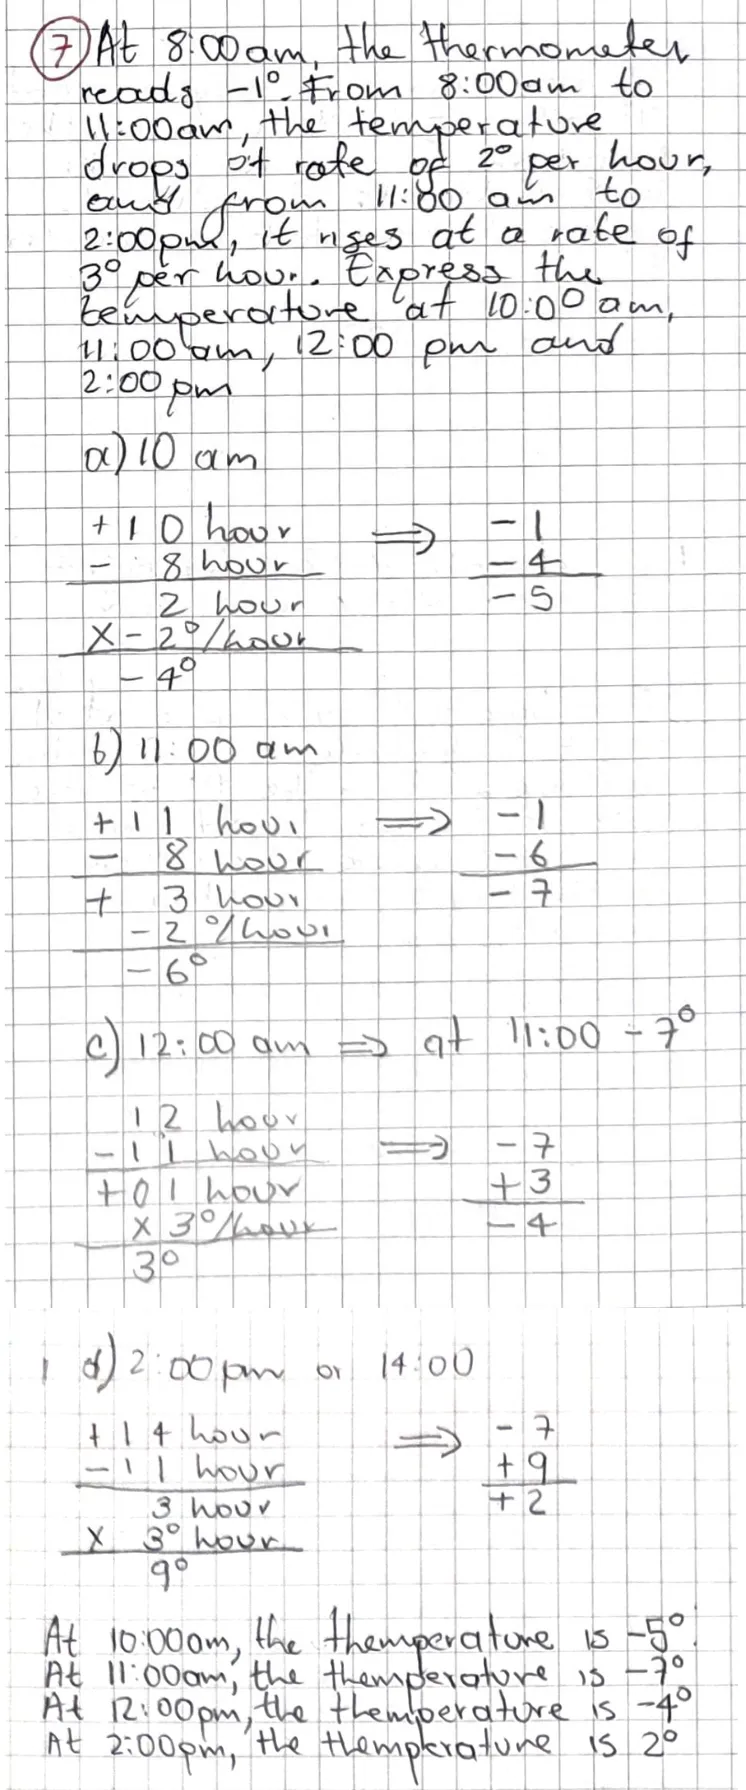 7) At 8:00 am, the thermometer
reads -1°. From 8:00am to
11:00am, the temperature
drops at rate of 2° per hour,
and from 11:00 am to
2:00pm, it rises at a rate of
3° per hour. Express the
temperature at 10:00 am,
11:00 am, 12:00 pm and
2:00 pm
a) 10 am
+ 1 0 hour ⇒ - 1
- 8 hour - 4
2 hour - 5
x - 2°/hour
- 4°
b) 11:00 am
+ 1 1 hour ⇒ - 1
- 8 hour - 6
+ 3 hour - 7
- 2 °/hour
- 6°
c) 12:00 am ⇒ at 11:00 - 7°
1 2 hour
- 1 1 hour ⇒ - 7
+ 0 1 hour + 3
x 3°/hour - 4
3°
d) 2:00 pm or 14:00
+ 1 4 hour ⇒ - 7
- 1 1 hour + 9
3 hour + 2
x 3° hour
9°
At 10:00am, the themperature is -5°
At 11:00am, the themperature is -7°
At 12:00pm, the themperature is -4°
At 2:00pm, the themperature is 2°